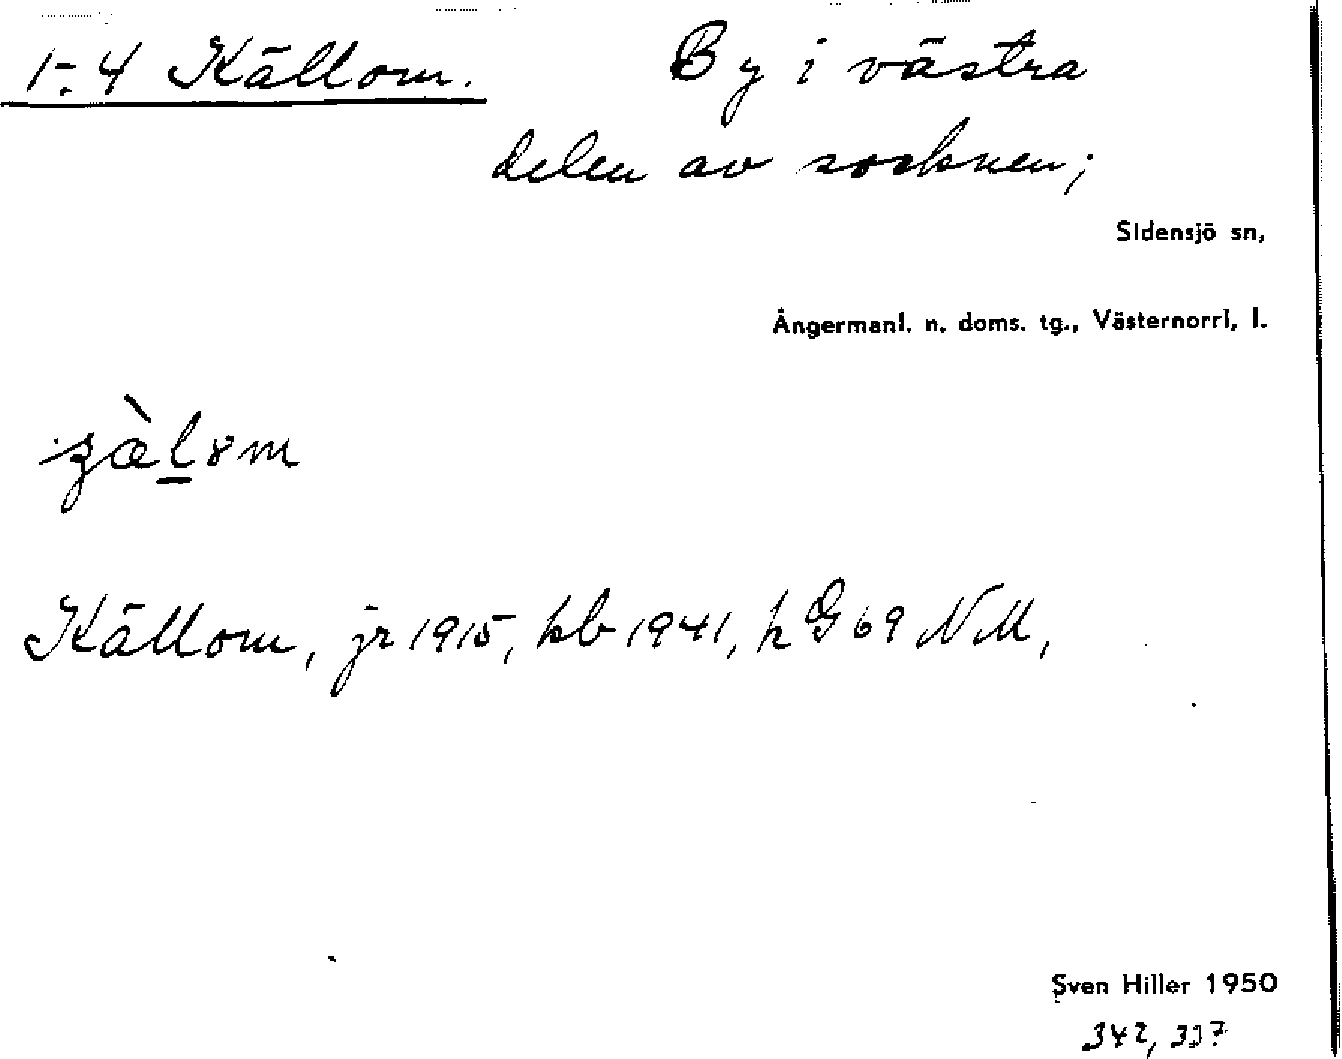 1-4 Källom. By i västra
delen av socknen;
Sidensjö sn,
Ångermanl. n. doms. tg., Västernorrl, l.
Källom, jr 1915, kb 1941, h G 69 NM,
Sven Hiller 1950
342, 337